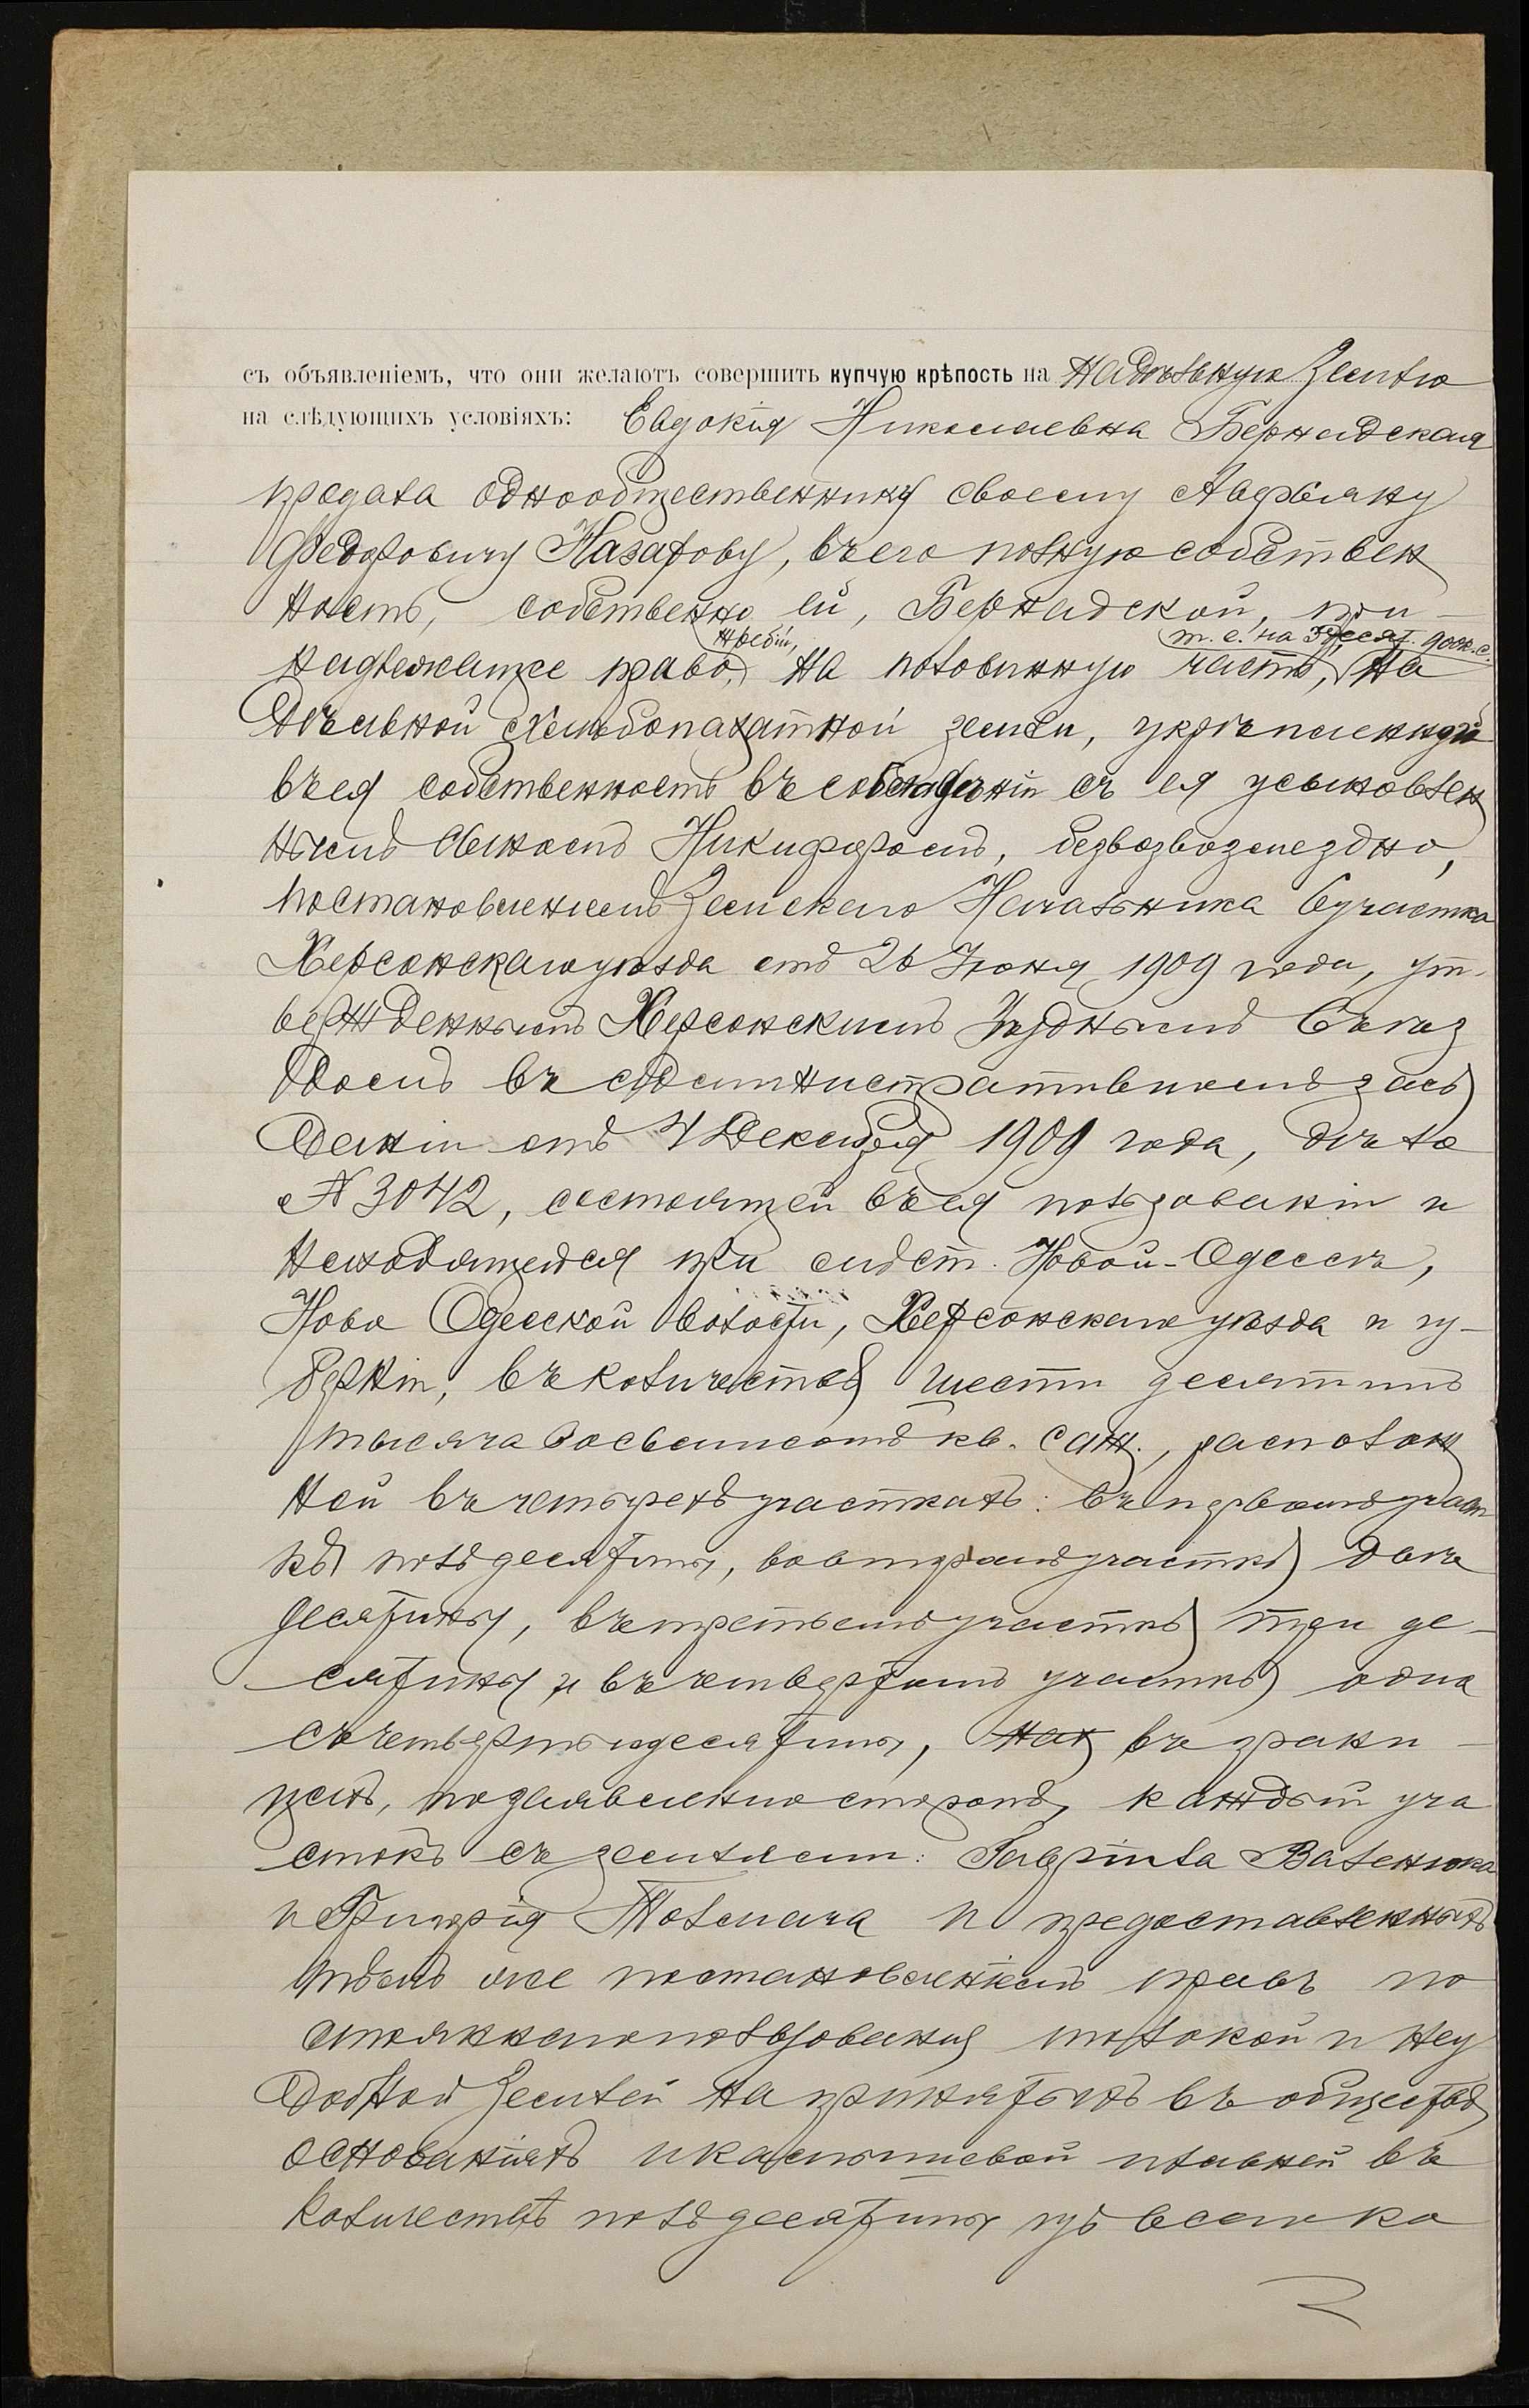 съ объявленіемъ, что они желаютъ совершить купчую крѣпость на надѣльную землю
на слѣдующихъ условіяхъ: Евдокія Николаевна Бернадская
продала однообщественнику своему Аверьяну
Федоровичу Назарову, въ его полную собствен
ность, собственно ей, Бернадской, при-
жребій, т. е. на 3 десят. 900 к. с.
надлежащее право, на половинную часть, на
дѣльной хлѣбопахатной земли, укрѣпленной
въ ея собственность въ совладѣніи съ ея усыновлен
нымъ сыномъ Никифоромъ, безвозмездно,
постановленіемъ Земскаго Начальника 6 участка
Херсонскаго уѣзда отъ 26 Іюня 1909 года, ут-
вержденнымъ Херсонскимъ Уѣзднымъ Съѣз
домъ въ административномъ засѣ
даніи отъ 4 Декабря 1909 года, дѣло
№ 3042, состоящей въ ея пользованіи и
находящейся при мѣст. Новой-Одессѣ,
Ново Одесской волости, Херсонскаго уѣзда и гу-
берніи, въ количествѣ шести десятинъ
тысяча восемьсотъ кв. саж., располож
ной въ четырехъ участкахъ: въ первомъ участ
кѣ полъ десятины, во второмъ участкѣ двѣ
десятины, въ третьемъ участкѣ три де-
сятины и въ четвертомъ участкѣ одна
съ четвертью десятины, въ грани-
цахъ, по заявленію сторонъ, каждый уча
стокъ съ землями: Гавріила Валенюка
и Григорія Толмача и предоставленныхъ
тѣмъ же постановленіемъ правъ по
стояннаго пользованія толокой и неу
добной землей на принятыхъ въ обществѣ
основаніяхъ и камышевой плавней въ
количествѣ полъ десятины изъ всего ко